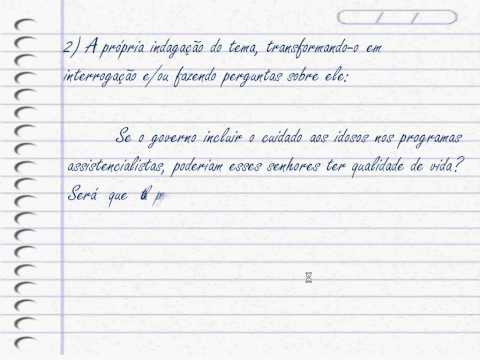 2) A própria indagação do tema, transformando-o em
interrogação e/ou fazendo perguntas sobre ele:
Se o governo incluir o cuidado aos idosos nos programas
assistencialistas, poderiam esses senhores ter qualidade de vida?
Será que